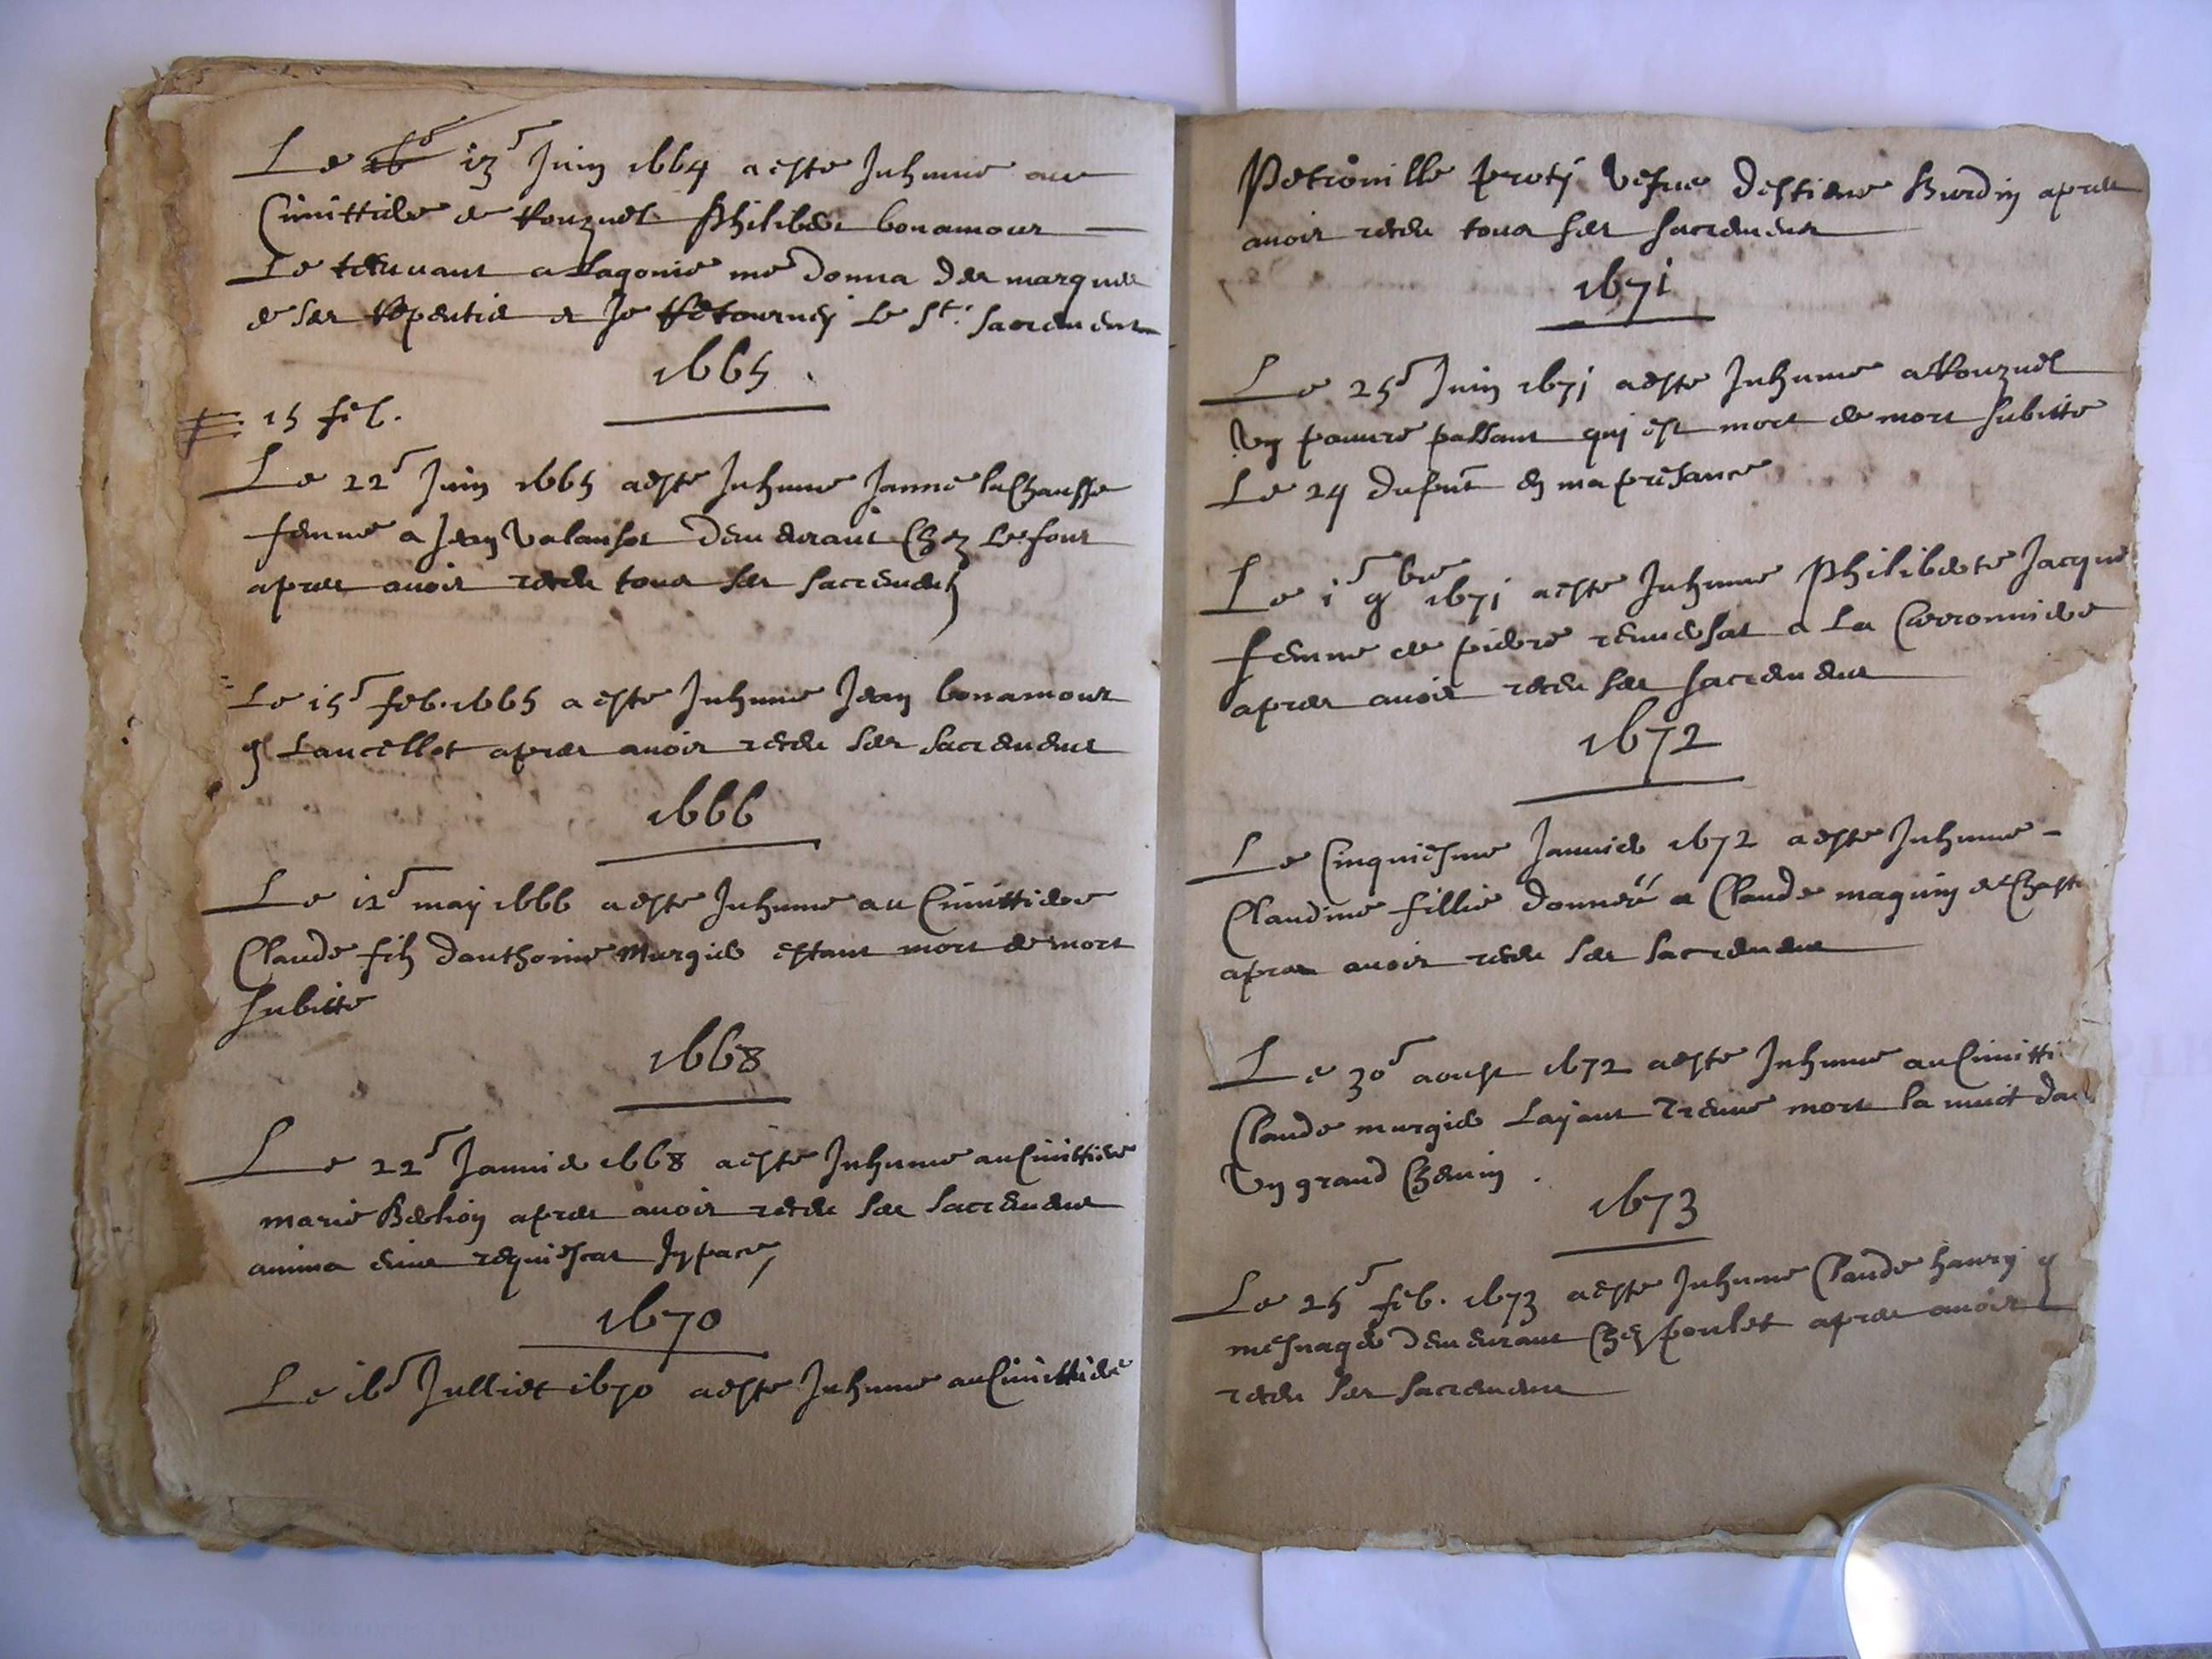 Le 13e Juin 1664 a este Inhume au
Cimittiere de Rouzuel Philibert bonamour
Le treuuant a Lagonie me donna des marques
de ses Repentie et Je Retourney Le St. Sacrement
1665.
15 feb.
Le 22e Juin 1665 a este Inhume Janne la Chausse
femme a Jean Valansot demeurant Chez Lefour
apres auoir receu tous ses sacremens
Le 15e feb. 1665 a este Inhume Jean bonamour
Lancellot apres auoir receu ses sacrements
1666
Le 12e may 1666 a este Inhume au Cimittiere
Claude filz danthoine Murgier estant mort de mort
subitte
1668
Le 22e Januier 1668 a este Inhume au Cimittiere
marie apres auoir receu ses sacrements
anima eius requiescat In pace,
1670
Le 16e Julliet 1670 a este Inhume au Cimittiere
Petronille proty vefue destiene Burdin apres
auoir receu tous ses sacrements
1671
Le 25e Juin 1671 a este Inhume a Rouzuel
Un pauure passant qui est mort de mort subitte
Le 24 du put en ma presance
Le 1e 9bre 1671 a este Inhume Philiberte Jacque
femme de pierre reuuersat a La Carronniere
apres auoir receu ses sacrements
1672
Le Cinquiesme Januier 1672 a este Inhume
Claudine fillie donneé a Claude maguin
apres auoir receu ses sacrements
Le 30e aoust 1672 a este Inhume au Cimitti
Claude murgier Layant Treuue mort la nuict da
Un grand Chemin.
1673
Le 25e feb. 1673 a este Inhume Claude hanry
mesnager demeurant Chez poulet apres auoir
receu ses sacrements